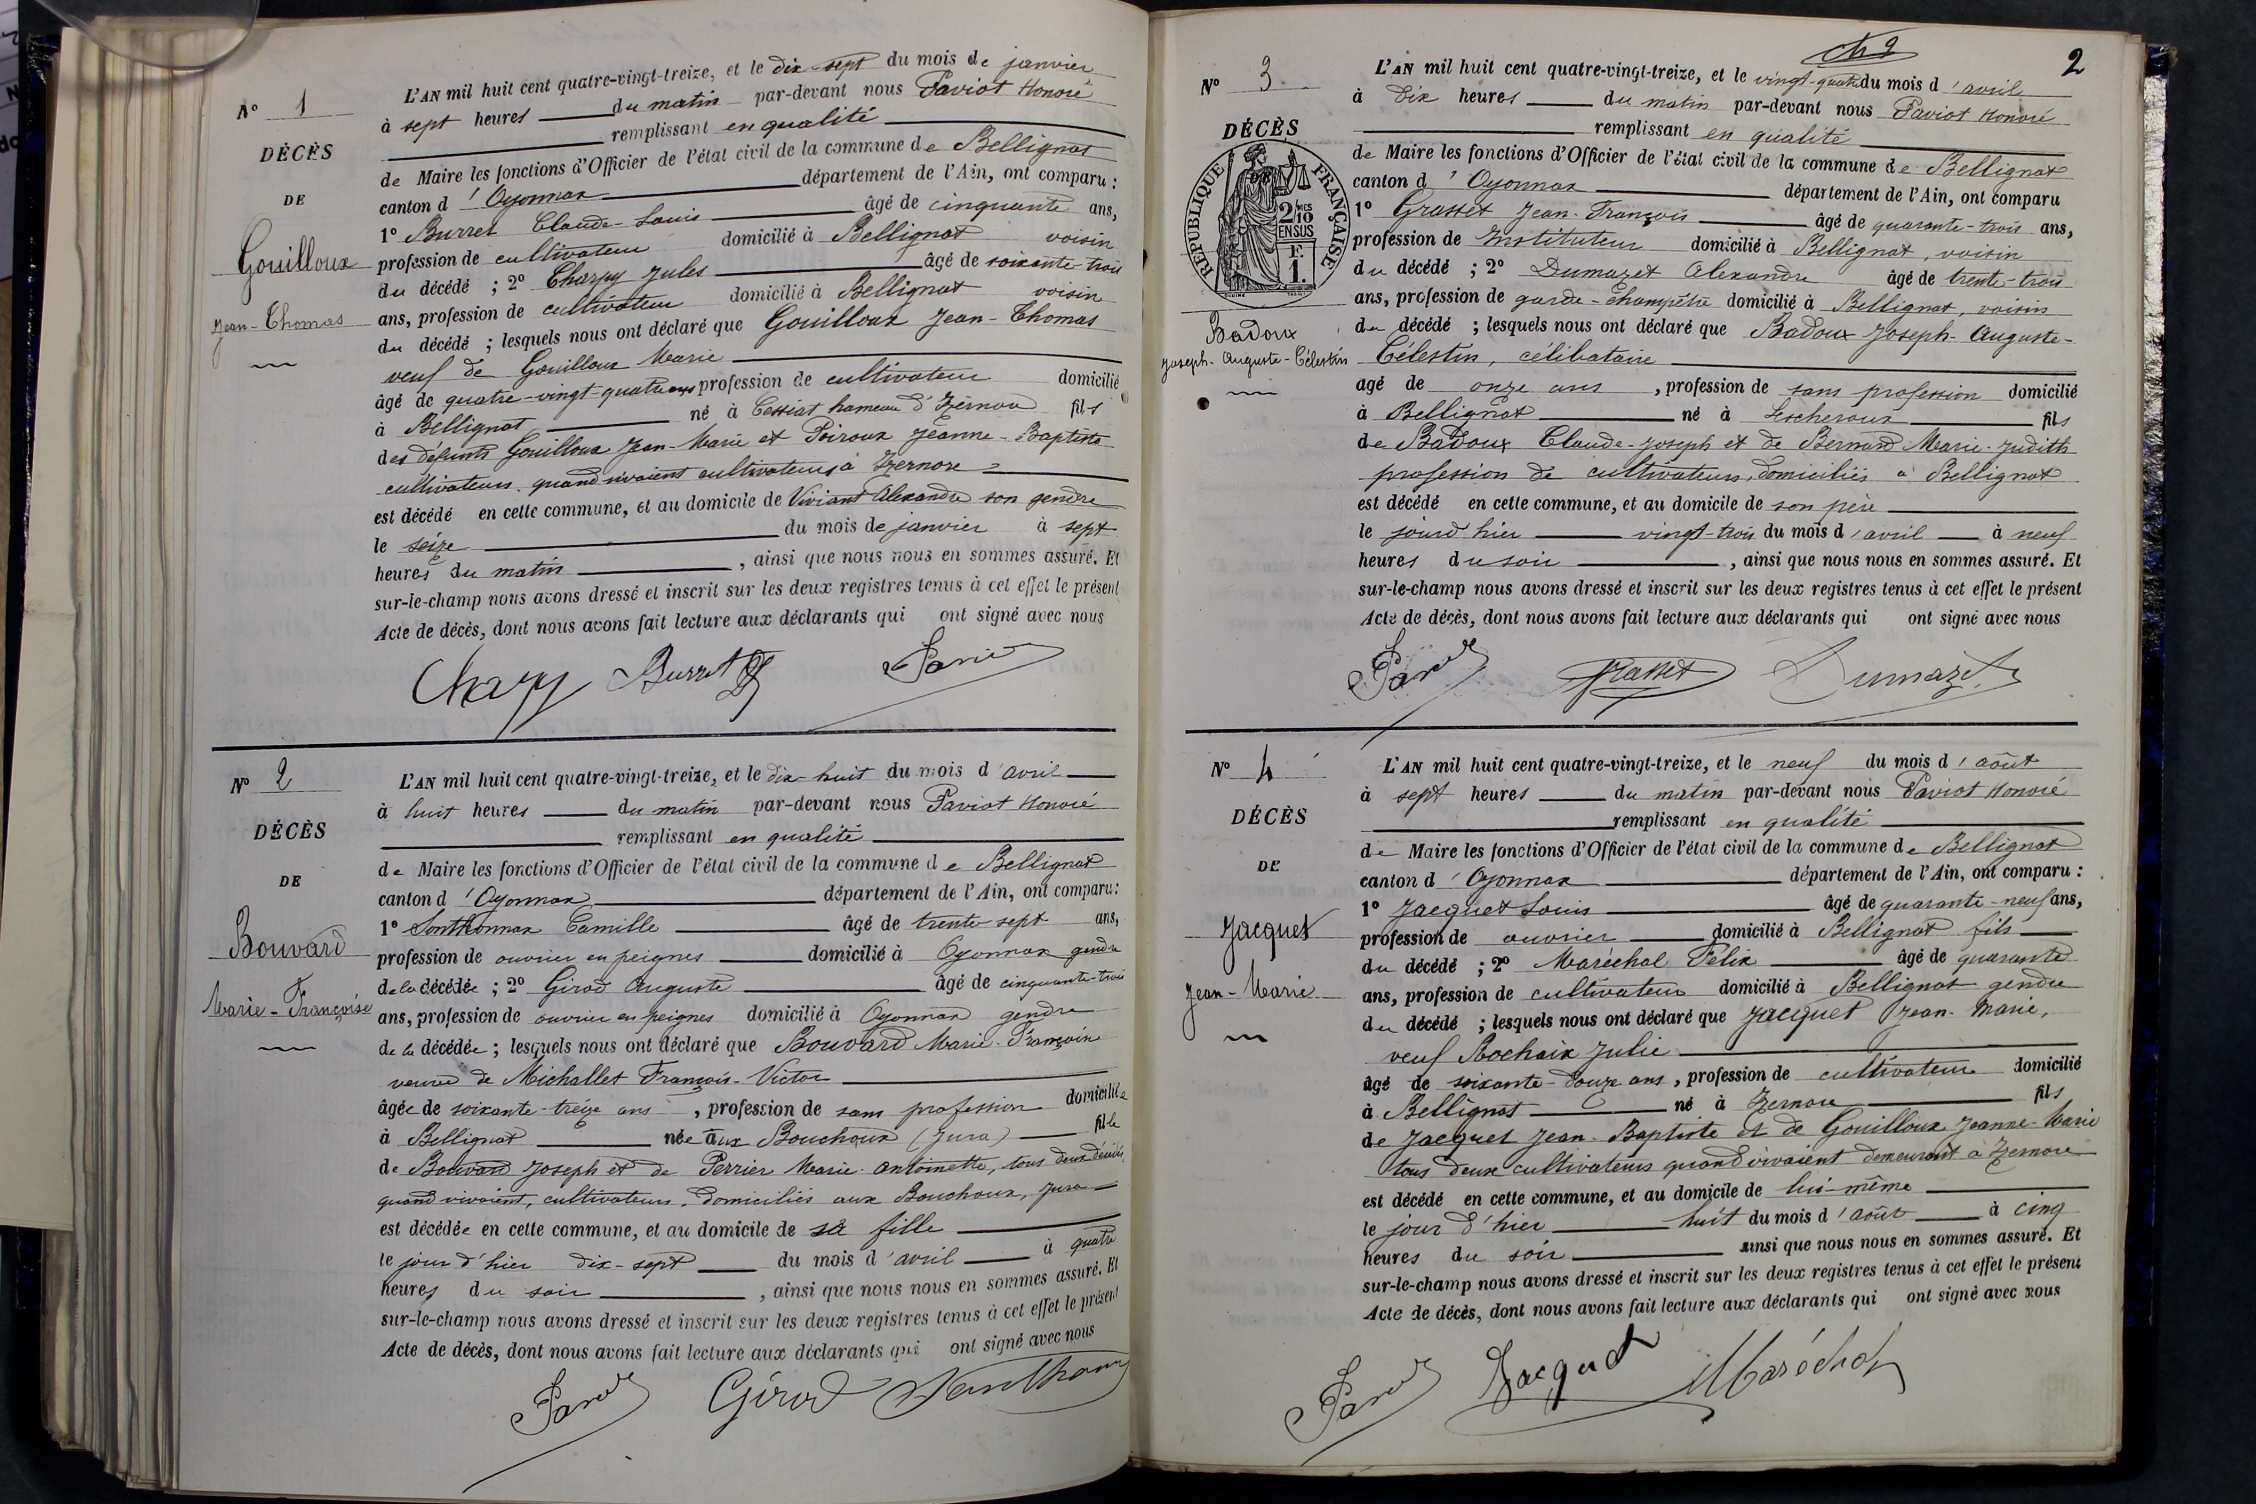 N° 1
DÉCÈS
DE
Gouilloux
Jean-Thomas
L'AN mil huit cent quatre-vingt-treize, et le dix-sept du mois de janvier
à sept heures du matin par-devant nous Paviot Honoré
remplissant en qualité
de Maire les fonctions d'Officier de l'état civil de la commune de Bellignat
canton d'Oyonnax département de l'Ain, ont comparu :
1° Burret Claude-Louis âgé de cinquante ans,
profession de cultivateur domicilié à Bellignat voisin
du décédé ; 2° Charpy Jules âgé de soixante-trois
ans, profession de cultivateur domicilié à Bellignat voisin
du décédé ; lesquels nous ont déclaré que Gouilloux Jean-Thomas
veuf de Gouilloux Marie
âgé de quatre-vingt-quatre ans profession de cultivateur domicilié
à Bellignat né à Cessiat hameau d'Izernore fils
des défunts Gouilloux Jean-Marie et Poiroux Jeanne-Baptiste
cultivateurs quand vivaient cultivateurs à Izernore
est décédé en cette commune, et au domicile de Viviant Alexandre son gendre
le seize du mois de janvier à sept
heures du matin, ainsi que nous nous en sommes assuré. Et
sur-le-champ nous avons dressé et inscrit sur les deux registres tenus à cet effet le présent
Acte de décès, dont nous avons fait lecture aux déclarants qui ont signé avec nous
Charpy Burret Paviot
N° 2
DÉCÈS
DE
Bouvard
Marie-Françoise
L'AN mil huit cent quatre-vingt-treize, et le dix-huit du mois d'avril
à huit heures du matin par-devant nous Paviot Honoré
remplissant en qualité
de Maire les fonctions d'Officier de l'état civil de la commune de Bellignat
canton d'Oyonnax département de l'Ain, ont comparu :
1° Sonthonnax Camille âgé de trente-sept ans,
profession de ouvrier en peignes domicilié à Oyonnax gendre
de la décédée ; 2° Girod Auguste âgé de cinquante-trois
ans, profession de ouvrier en peignes domicilié à Oyonnax gendre
de la décédée ; lesquels nous ont déclaré que Bouvard Marie-Françoise
veuve de Michallet François-Victor
âgée de soixante-treize ans, profession de sans profession domiciliée
à Bellignat née aux Bouchoux (Jura) fille
de Bouvard Joseph et de Perrier Marie-Antoinette, tous deux décédés
quand vivaient, cultivateurs, domiciliés aux Bouchoux, Jura
est décédée en cette commune, et au domicile de sa fille
le jour d'hier dix-sept du mois d'avril à quatre
heures du soir, ainsi que nous nous en sommes assuré. Et
sur-le-champ nous avons dressé et inscrit sur les deux registres tenus à cet effet le présent
Acte de décès, dont nous avons fait lecture aux déclarants qui ont signé avec nous
Paviot Girod Sonthonnax
2
N° 3
DÉCÈS
DE
RÉPUBLIQUE FRANÇAISE
2/10 EN SUS
1 F.
Badoux
Joseph-Auguste-Célestin
L'AN mil huit cent quatre-vingt-treize, et le vingt-quatre du mois d'avril
à dix heures du matin par-devant nous Paviot Honoré
remplissant en qualité
de Maire les fonctions d'Officier de l'état civil de la commune de Bellignat
canton d'Oyonnax département de l'Ain, ont comparu
1° Grasset Jean-François âgé de quarante-trois ans,
profession de Instituteur domicilié à Bellignat, voisin
du décédé ; 2° Dumazet Alexandre âgé de trente-trois
ans, profession de garde-champêtre domicilié à Bellignat, voisin
du décédé ; lesquels nous ont déclaré que Badoux Joseph-Auguste-
Célestin, célibataire
agé de onze ans, profession de sans profession domicilié
à Bellignat né à Lescheroux fils
de Badoux Claude-Joseph et de Bernard Marie-Judith
profession de cultivateurs, domiciliés à Bellignat
est décédé en cette commune, et au domicile de son père
le jourd'hier vingt-trois du mois d'avril à neuf
heures du soir, ainsi que nous nous en sommes assuré. Et
sur-le-champ nous avons dressé et inscrit sur les deux registres tenus à cet effet le présent
Acte de décès, dont nous avons fait lecture aux déclarants qui ont signé avec nous
Paviot Grasset Dumazet
N° 4
DÉCÈS
DE
Jacquet
Jean-Marie
L'AN mil huit cent quatre-vingt-treize, et le neuf du mois d'août
à sept heures du matin par-devant nous Paviot Honoré
remplissant en qualité
de Maire les fonctions d'Officier de l'état civil de la commune de Bellignat
canton d'Oyonnax département de l'Ain, ont comparu :
1° Jacquet Louis âgé de quarante-neuf ans,
profession de ouvrier domicilié à Bellignat fils
du décédé ; 2° Maréchal Félix âgé de quarante
ans, profession de cultivateur domicilié à Bellignat gendre
du décédé ; lesquels nous ont déclaré que Jacquet Jean-Marie,
veuf Rochaix Julie
âgé de soixante-douze ans, profession de cultivateur domicilié
à Bellignat né à Izernore fils
de Jacquet Jean-Baptiste et de Gouilloux Jeanne-Marie
tous deux cultivateurs quand vivaient demeurant à Izernore
est décédé en cette commune, et au domicile de lui-même
le jour d'hier huit du mois d'août à cinq
heures du soir ainsi que nous nous en sommes assuré. Et
sur-le-champ nous avons dressé et inscrit sur les deux registres tenus à cet effet le présent
Acte de décès, dont nous avons fait lecture aux déclarants qui ont signé avec nous
Paviot Jacquet Maréchal